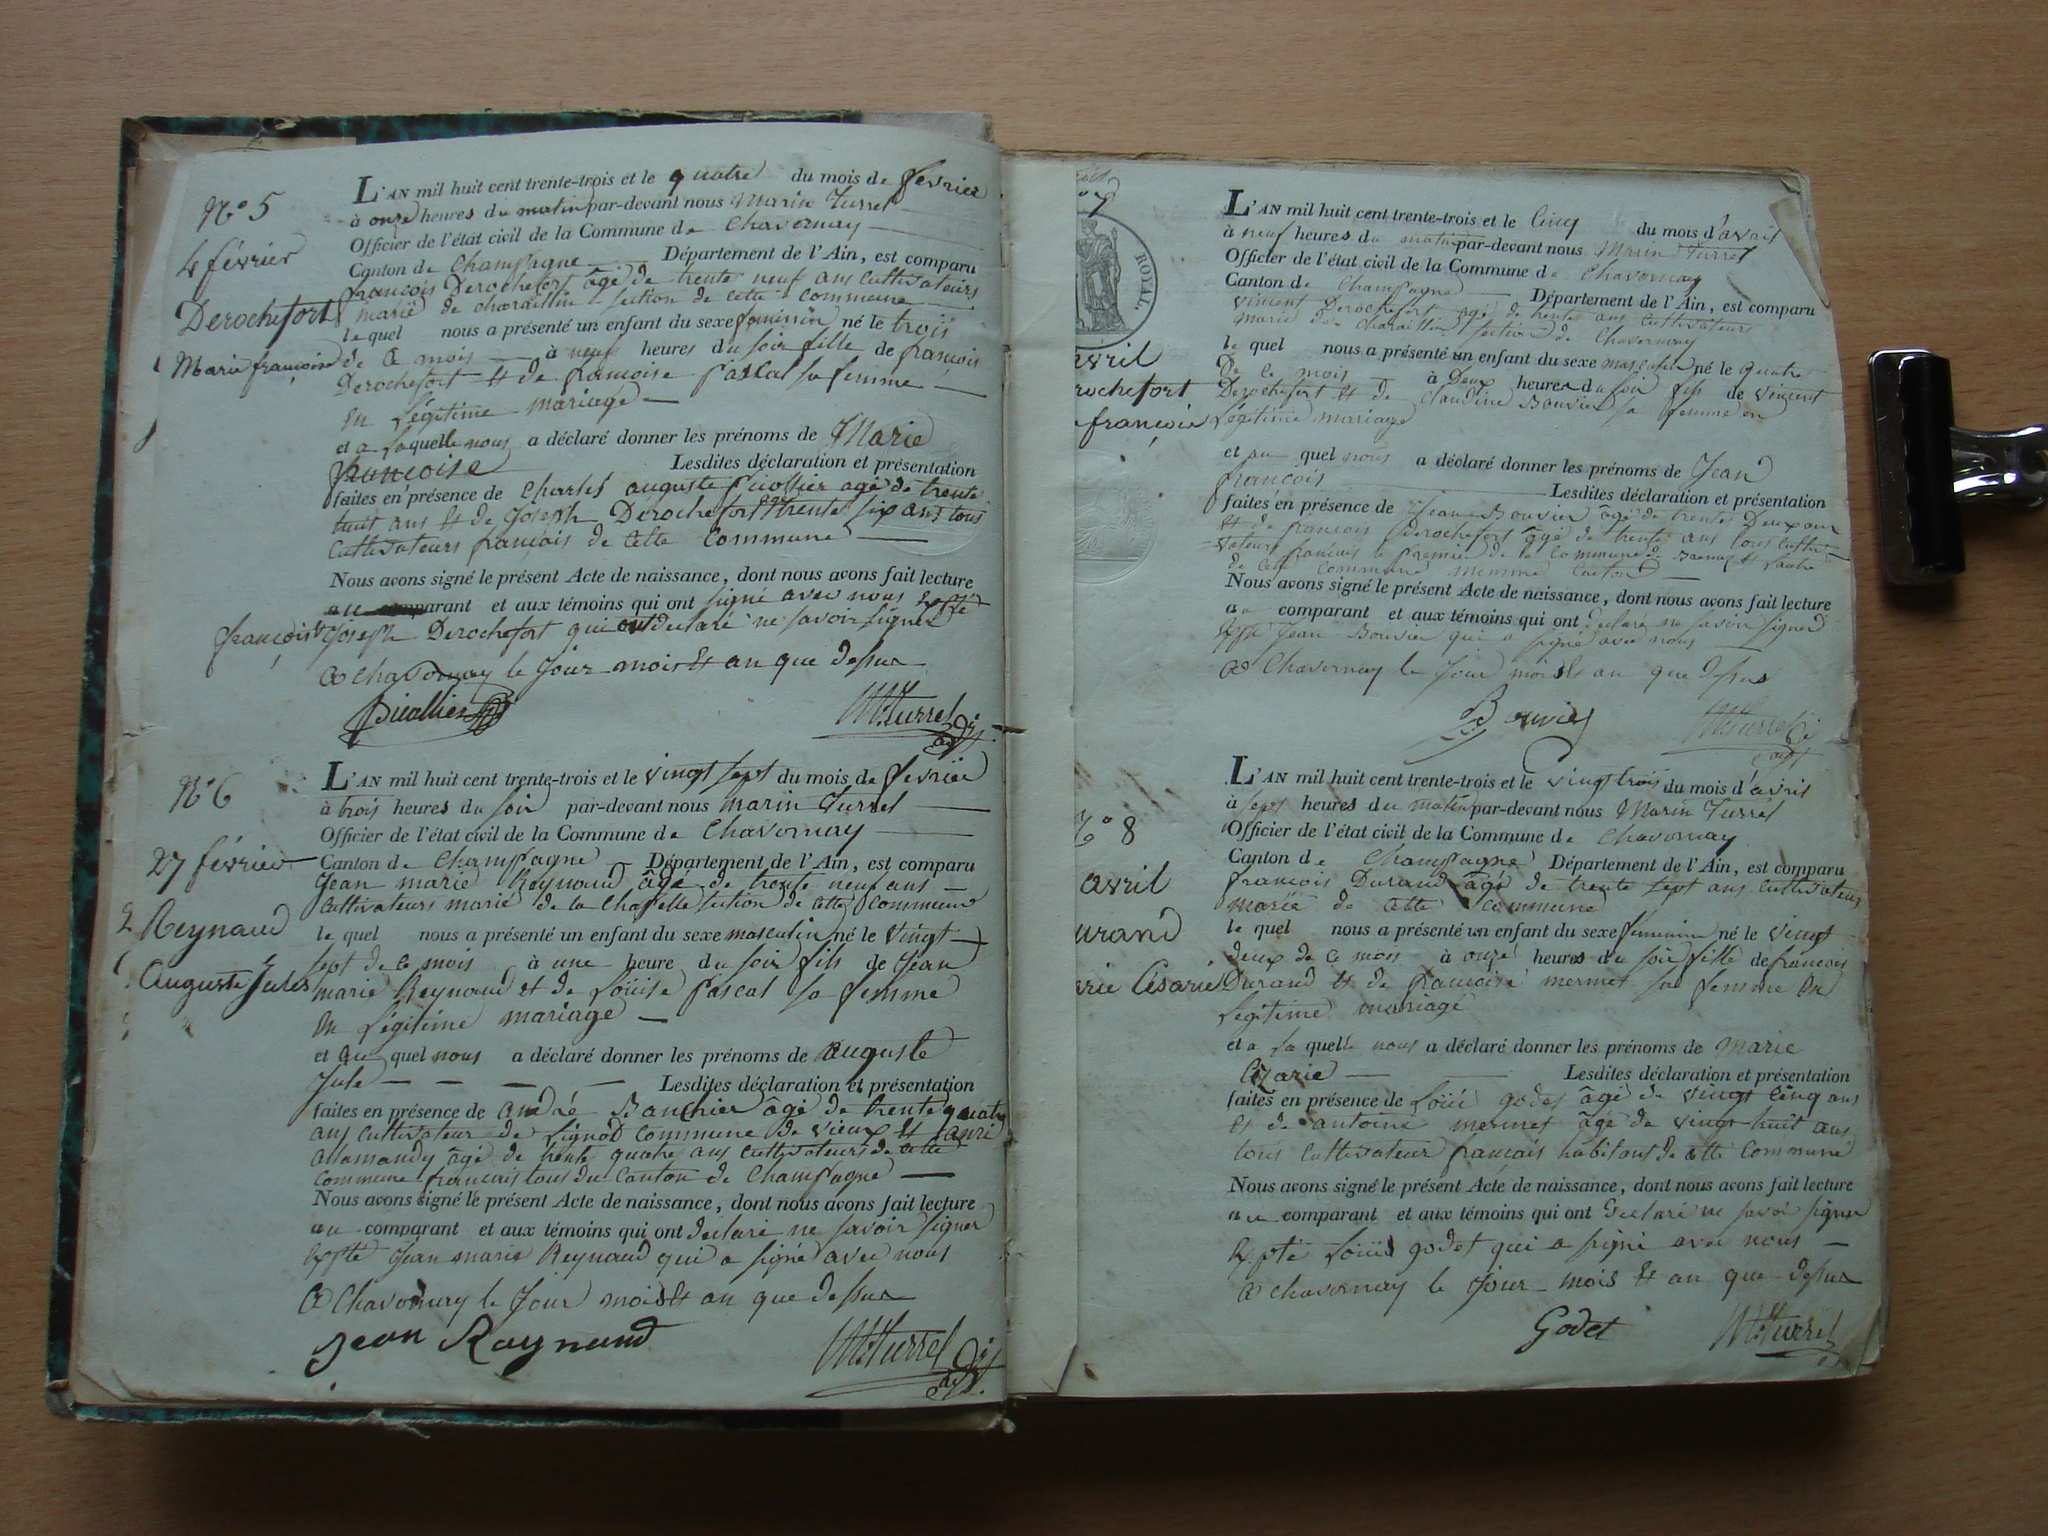 N.º 5
4 février
Derochefort
Marie françoise
L'AN mil huit cent trente-trois et le quatre du mois de fevrier
à onze heures du matin par-devant nous Marin Turrel
Officier de l'état civil de la Commune de Chavornay
Canton de Champagne Département de l'Ain, est comparu
francois Derochefort âgé de trente neuf ans cultivateurs
marié de charaillin section de cette commune
le quel nous a présenté un enfant du sexe né le trois
de ce mois à neuf heures du soir fille de francois
Derochefort et de francoise Pascal sa femme
en Légitime mariage
et a laquelle nous a déclaré donner les prénoms de Marie
francoise Lesdites déclaration et présentation
faites en présence de Charles auguste agé de trente
huit ans et de Joseph Derochefort trente six ans tous
cultivateurs francais de cette commune
Nous avons signé le présent Acte de naissance, dont nous avons fait lecture
au comparant et aux témoins qui ont signé avec nous
françois et Joseph Derochefort qui ont declaré ne savoir signer
a chavornay le Jour mois et an que dessus
M: Turrel
N.º 6
27 février
Reynaud
Auguste Jules
L'AN mil huit cent trente-trois et le vingt sept du mois de fevrier
à trois heures du soir par-devant nous marin Turrel
Officier de l'état civil de la Commune de Chavornay
Canton de Champagne Département de l'Ain, est comparu
Jean marie Reynaud âgé de trente neuf ans
cultivateurs marié de la Chapelle section de cette commune
le quel nous a présenté un enfant du sexe masculin né le vingt
sept de ce mois à une heure du soir fils de Jean
marie Reynaud et de Loüise Pascal sa femme
en Légitime mariage
et au quel nous a déclaré donner les prénoms de auguste
Jule Lesdites déclaration et présentation
faites en présence de André âgé de trente quatre
ans cultivateur de Lignod commune de vieux et
allamandy âgé de trente quatre ans cultivateurs de cette
commune francais tous du Canton de Champagne
Nous avons signé le présent Acte de naissance, dont nous avons fait lecture
au comparant et aux témoins qui ont declaré ne savoir signer
Jean marie Reynaud qui a signé avec nous
a Chavornay le Jour mois et an que dessus
Jean Raynaud M: Turrel
ROYAL.
avril
rochefort
françois
L'AN mil huit cent trente-trois et le cinq du mois d'avril
à neuf heures du matin par-devant nous Marin Turrel
Officier de l'état civil de la Commune de Chavornay
Canton de Champagne Département de l'Ain, est comparu
vincent Derochefort agé de trente ans cultivateurs
marié de charaillin section de Chavornay
le quel nous a présenté un enfant du sexe masculin né le quatre
De ce mois à Deux heures du soir fils de vincent
Derochefort et de Claudine Bouvier sa femme en
Légitime mariage
et au quel nous a déclaré donner les prénoms de Jean
françois Lesdites déclaration et présentation
faites en présence de Jean Bouvier âgé de trente Deux ans
et de francois Derochefort âgé de trente ans tous culti-
-vateurs francais le premier de la commune de et l'autre
de cette commune memme canton
Nous avons signé le présent Acte de naissance, dont nous avons fait lecture
au comparant et aux témoins qui ont declaré ne savoir signer
Jean Bouvier qui a signé avec nous
a Chavornay le Jour mois et an que dessus
Bouvier M: Turrel
N.º 8
avril
urand
rie Césarie
L'AN mil huit cent trente-trois et le vingt trois du mois d'avril
à sept heures du matin par-devant nous Marin Turrel
Officier de l'état civil de la Commune de Chavornay
Canton de Champagne Département de l'Ain, est comparu
francois Durand âgé de trente sept ans cultivateur
marié de cette commune
le quel nous a présenté un enfant du sexe féminin né le vingt
deux de ce mois à onze heures du soir fille de francois
Durand et de francoise mermet sa femme en
Légitime mariage
et a la quelle nous a déclaré donner les prénoms de Marie
Césarie Lesdites déclaration et présentation
faites en présence de Loüis godet âgé de vingt cinq ans
et de antoine mermet âgé de vingt huit ans
tous cultivateur francais habitans de cette commune
Nous avons signé le présent Acte de naissance, dont nous avons fait lecture
au comparant et aux témoins qui ont declaré ne savoir signer
Loüis godet qui a signé avec nous
a chavornay le Jour mois et an que dessus
Godet M: Turrel